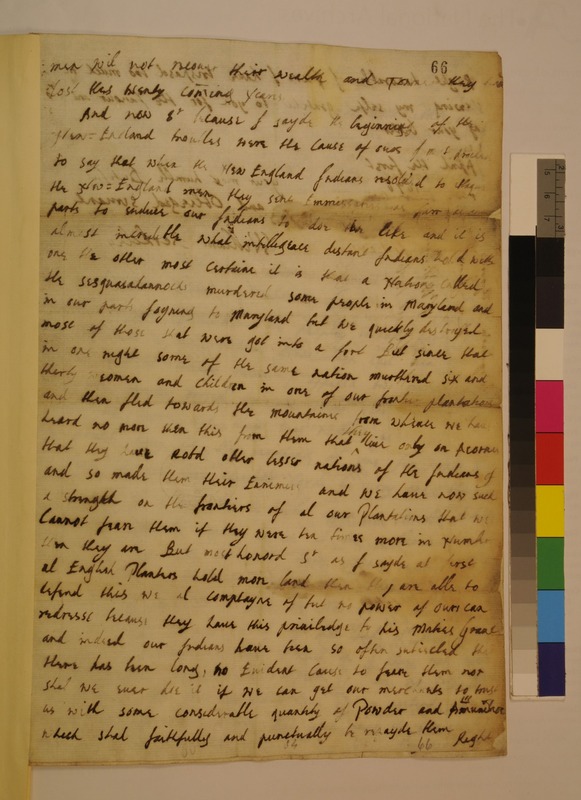 66
men wil not recover their wealth and they
lost this twenty coming years
And now Sr because I sayde the beginning of the
New=England troubles were the cause of ours I must
to say that when the New England Indians resolvd to
the New=England men they sent
parts to seduce our Indians to doe the like and it is
almost incredible what intelligence distant Indians hold with
one the other most certaine it is that a Nation called
the Sesquasahannocks murdered some people in Maryland and
in our parts joyning to Maryland but we quickly destroyed
most of those that were got into a fort But since that
in one night some of the same nation murthered six and
thirty women and children in one of our frontier plantations
and then fled towards the mountaines from whence we have
heard no more then this from them that they live only on acornes
that they have robd other lesser nations of the Indians
and so made them their Ennemies and we have now such
a strength on the frontiers of al our Plantations that we
Cannot feare them if they were ten times more in number
then they are But most honord Sr as I sayde at first
al English Planters hold more land then they are able to
defend this we al complayne of but no power of ours can
redresse because they have this priviledge to his Maties Grant
and indeed our Indians have been so often subjected that
there has been long, no Evident Cause to feare them nor
shal we ever doe it if we can get our merchants to trust
us with some considerable quantity of Powder and Amunition
which shal faithfully and punctually be repayde them
Right
66